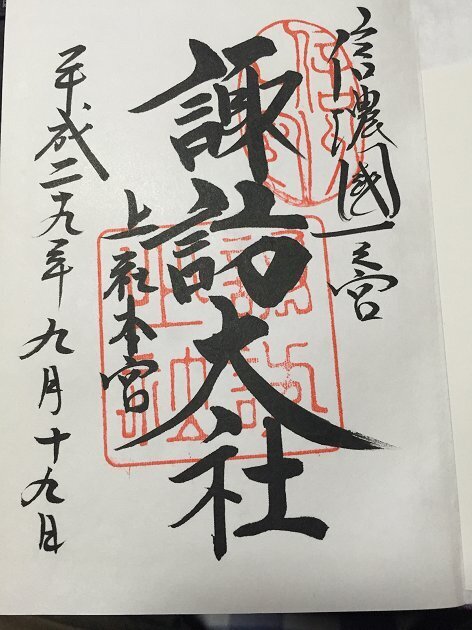 信濃國一之宮
諏訪大社
上社本宮
平成二九年九月十九日